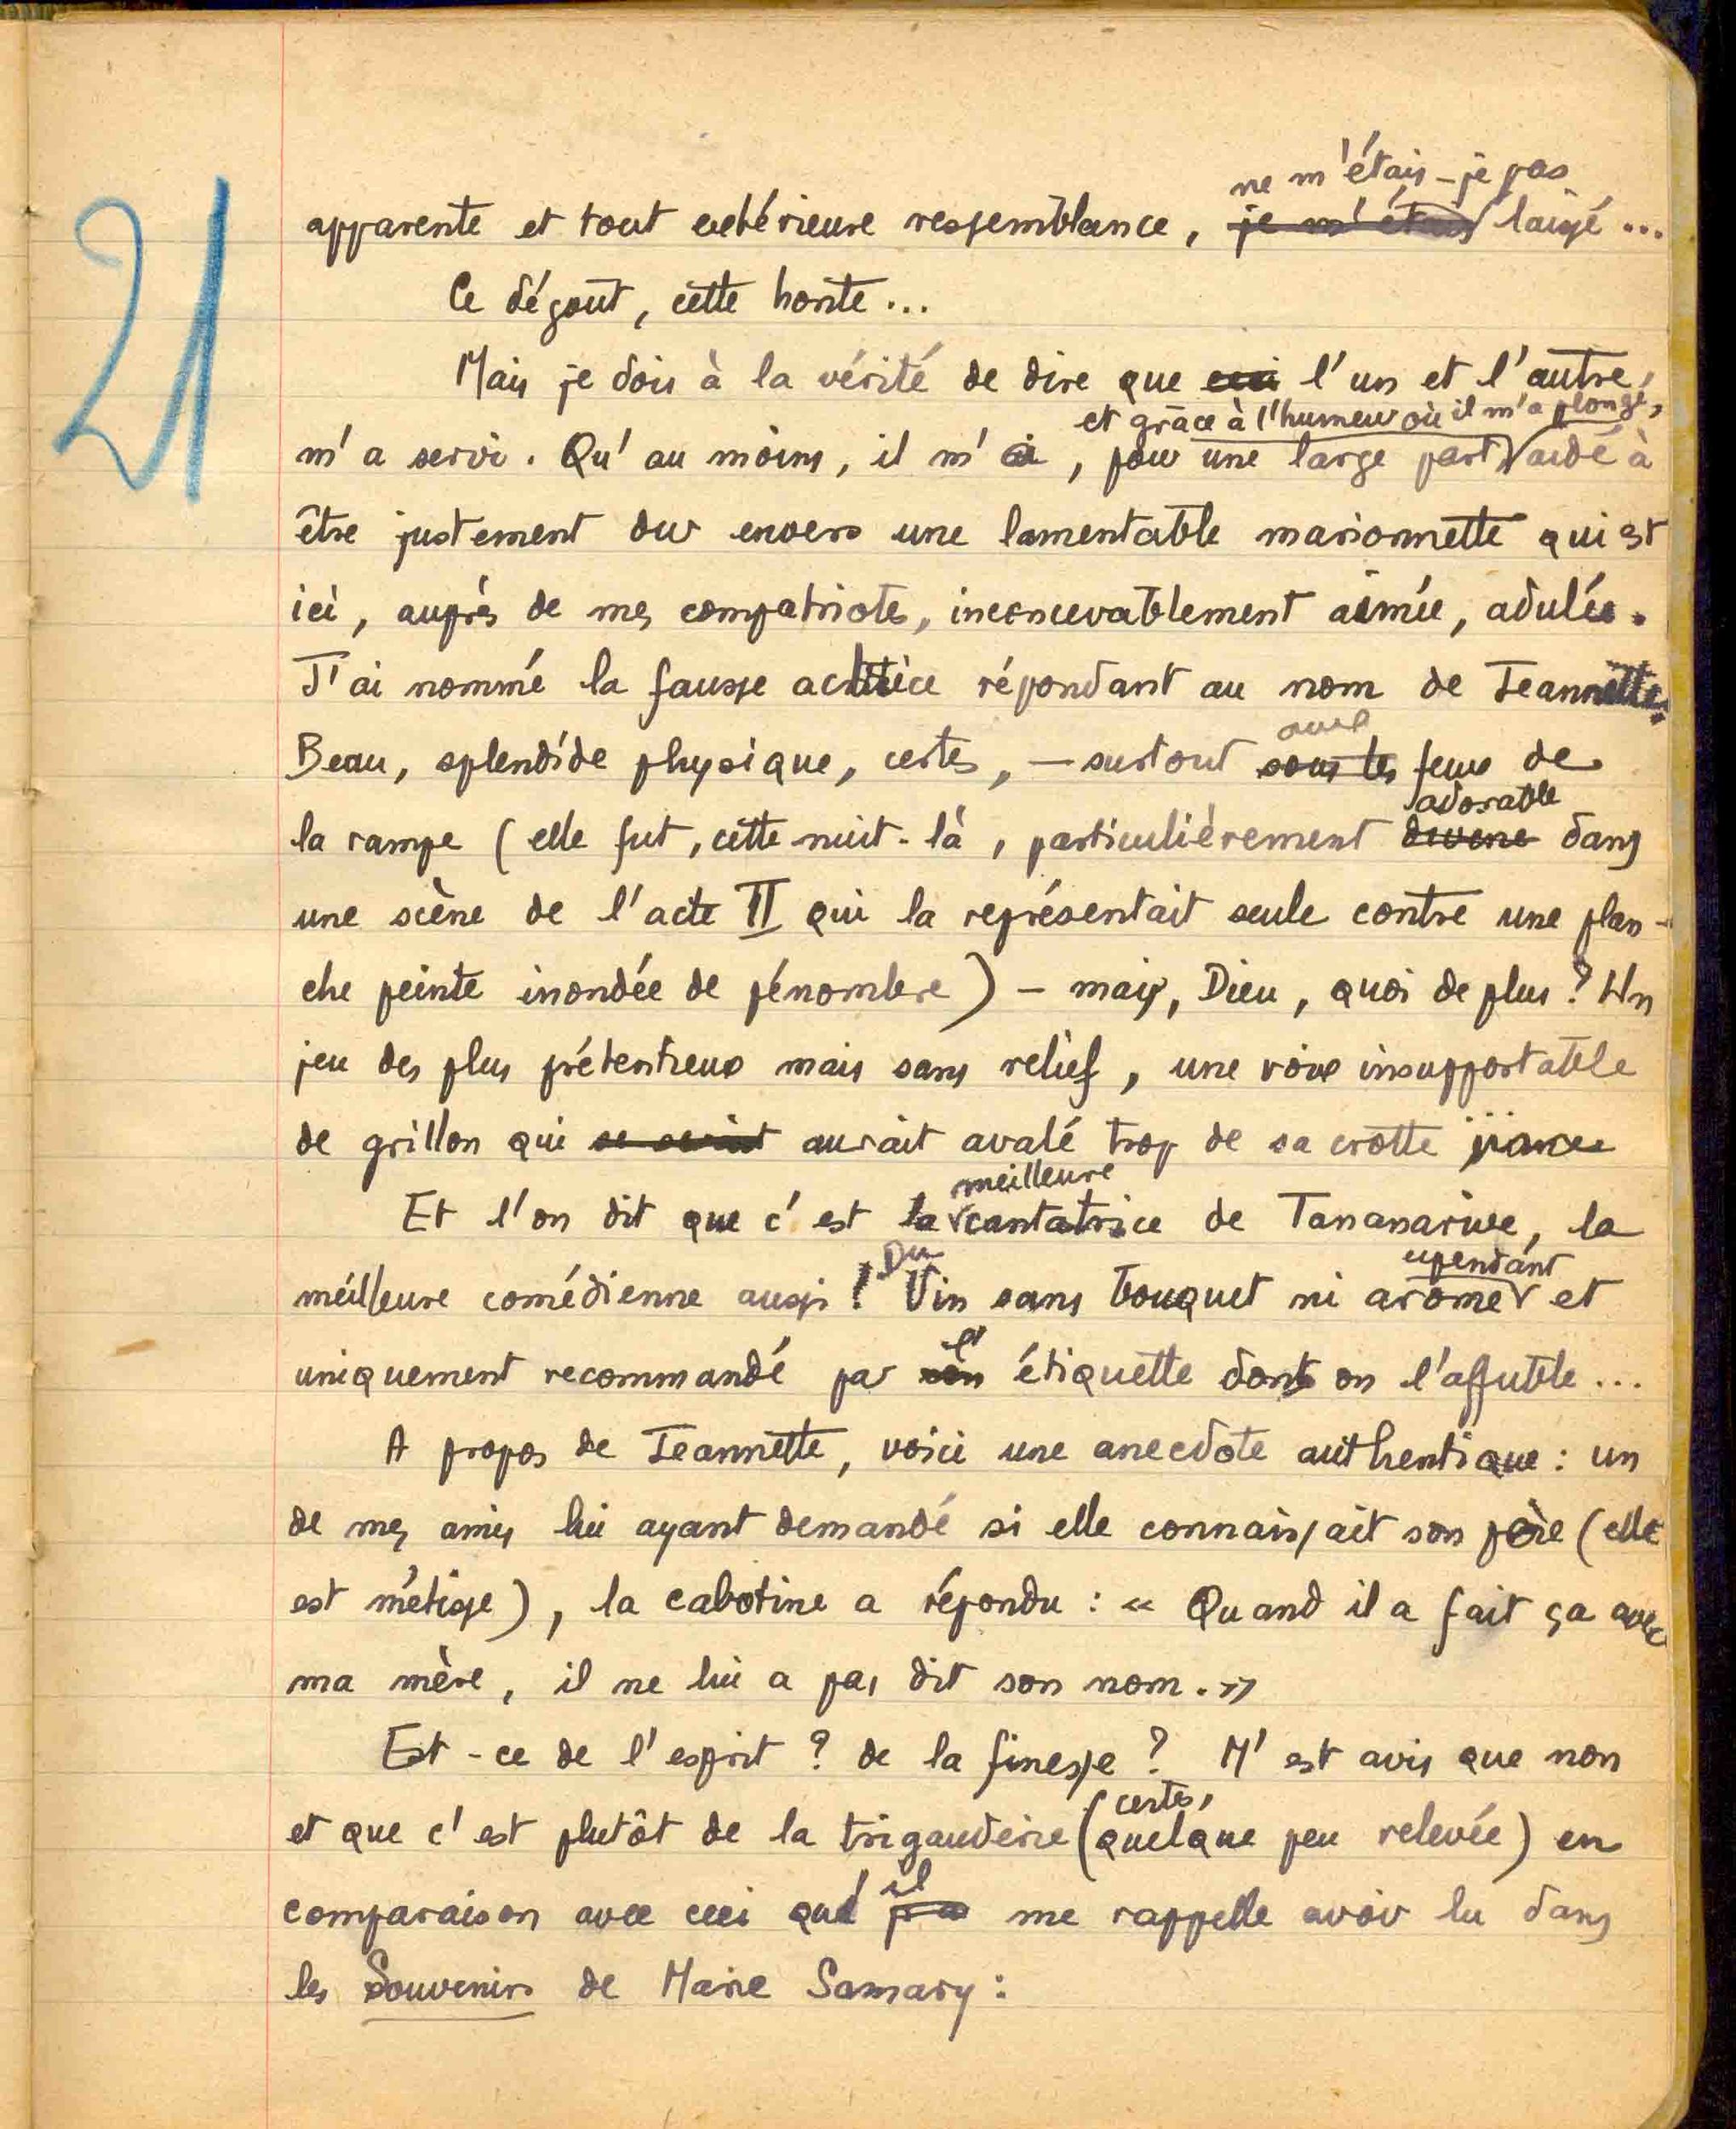 21
ne m'étais-je pas
apparente et tout extérieure ressemblance, je m'étais laissé...
Ce dégoût, cette honte...
Mais je dois à la vérité de dire que ceci l'un et l'autre,
et grâce à l'humeur où il m'a plongé,
m'a servi. Qu'au moins, il m'a, pour une large part, aidé à
être justement dur envers une lamentable marionnette qui est
ici, auprès de mes compatriotes, inconcevablement aimée, adulée.
J'ai nommé la fausse actrice répondant au nom de Jeannette.
aux
Beau, splendide physique, certes, — surtout sous les feux de
adorable
la rampe (elle fut, cette nuit-là, particulièrement divine dans
une scène de l'acte II qui la représentait seule contre une plan-
che peinte inondée de pénombre) — mais, Dieu, quoi de plus ? Un
jeu des plus prétentieux mais sans relief, une voix insupportable
de grillon qui se serait aurait avalé trop de sa crotte
meilleure
Et l'on dit que c'est la cantatrice de Tananarive, la
Du cependant
meilleure comédienne aussi ! Vin sans bouquet ni arome et
l'
uniquement recommandé par son étiquette dont on l'affuble...
A propos de Jeannette, voici une anecdote authentique : un
de mes amis lui ayant demandé si elle connaissait son père (elle
est métisse), la cabotine a répondu : « Quand il a fait ça avec
ma mère, il ne lui a pas dit son nom. »
Est-ce de l'esprit ? de la finesse ? M'est avis que non
certes,
et que c'est plutôt de la trigauderie (quelque peu relevée) en
il
comparaison avec ceci qu' me rappelle avoir lu dans
les Souvenirs de Marie Samary :